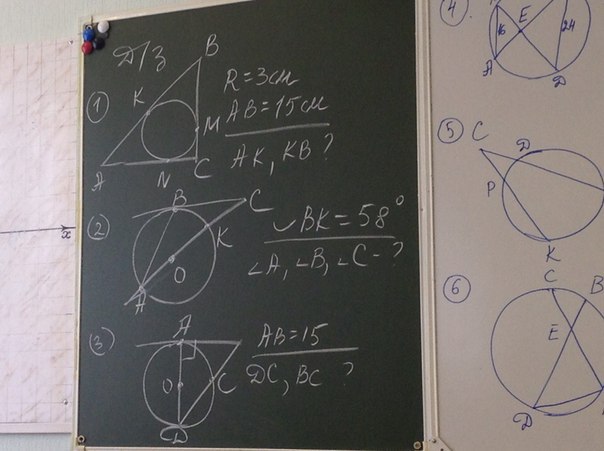 Д/З
①
B
K
M
A
N
C
R=3см
AB=15см
AK, KB ?
②
B
C
K
O
A
◡BK=58°
∠A, ∠B, ∠C-?
③
A
O
C
D
AB=15
DC, BC ?
④
16
E
24
A
D
⑤
C
D
P
K
⑥
C
B
E
D
x